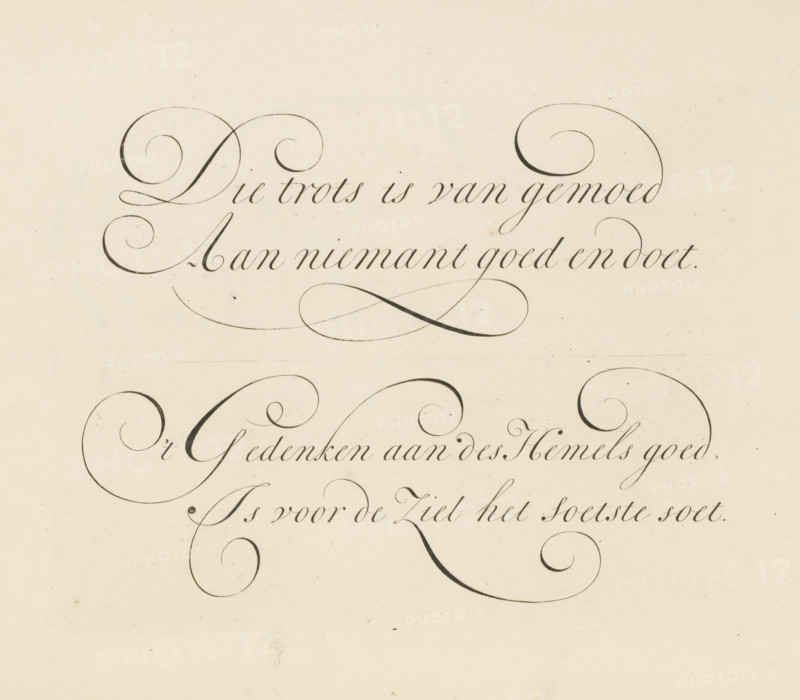 Die trots is van gemoed
Aan niemant goed en doet.
't Gedenken aan des Hemels goed,
Is voor de Ziel het soetste soet.